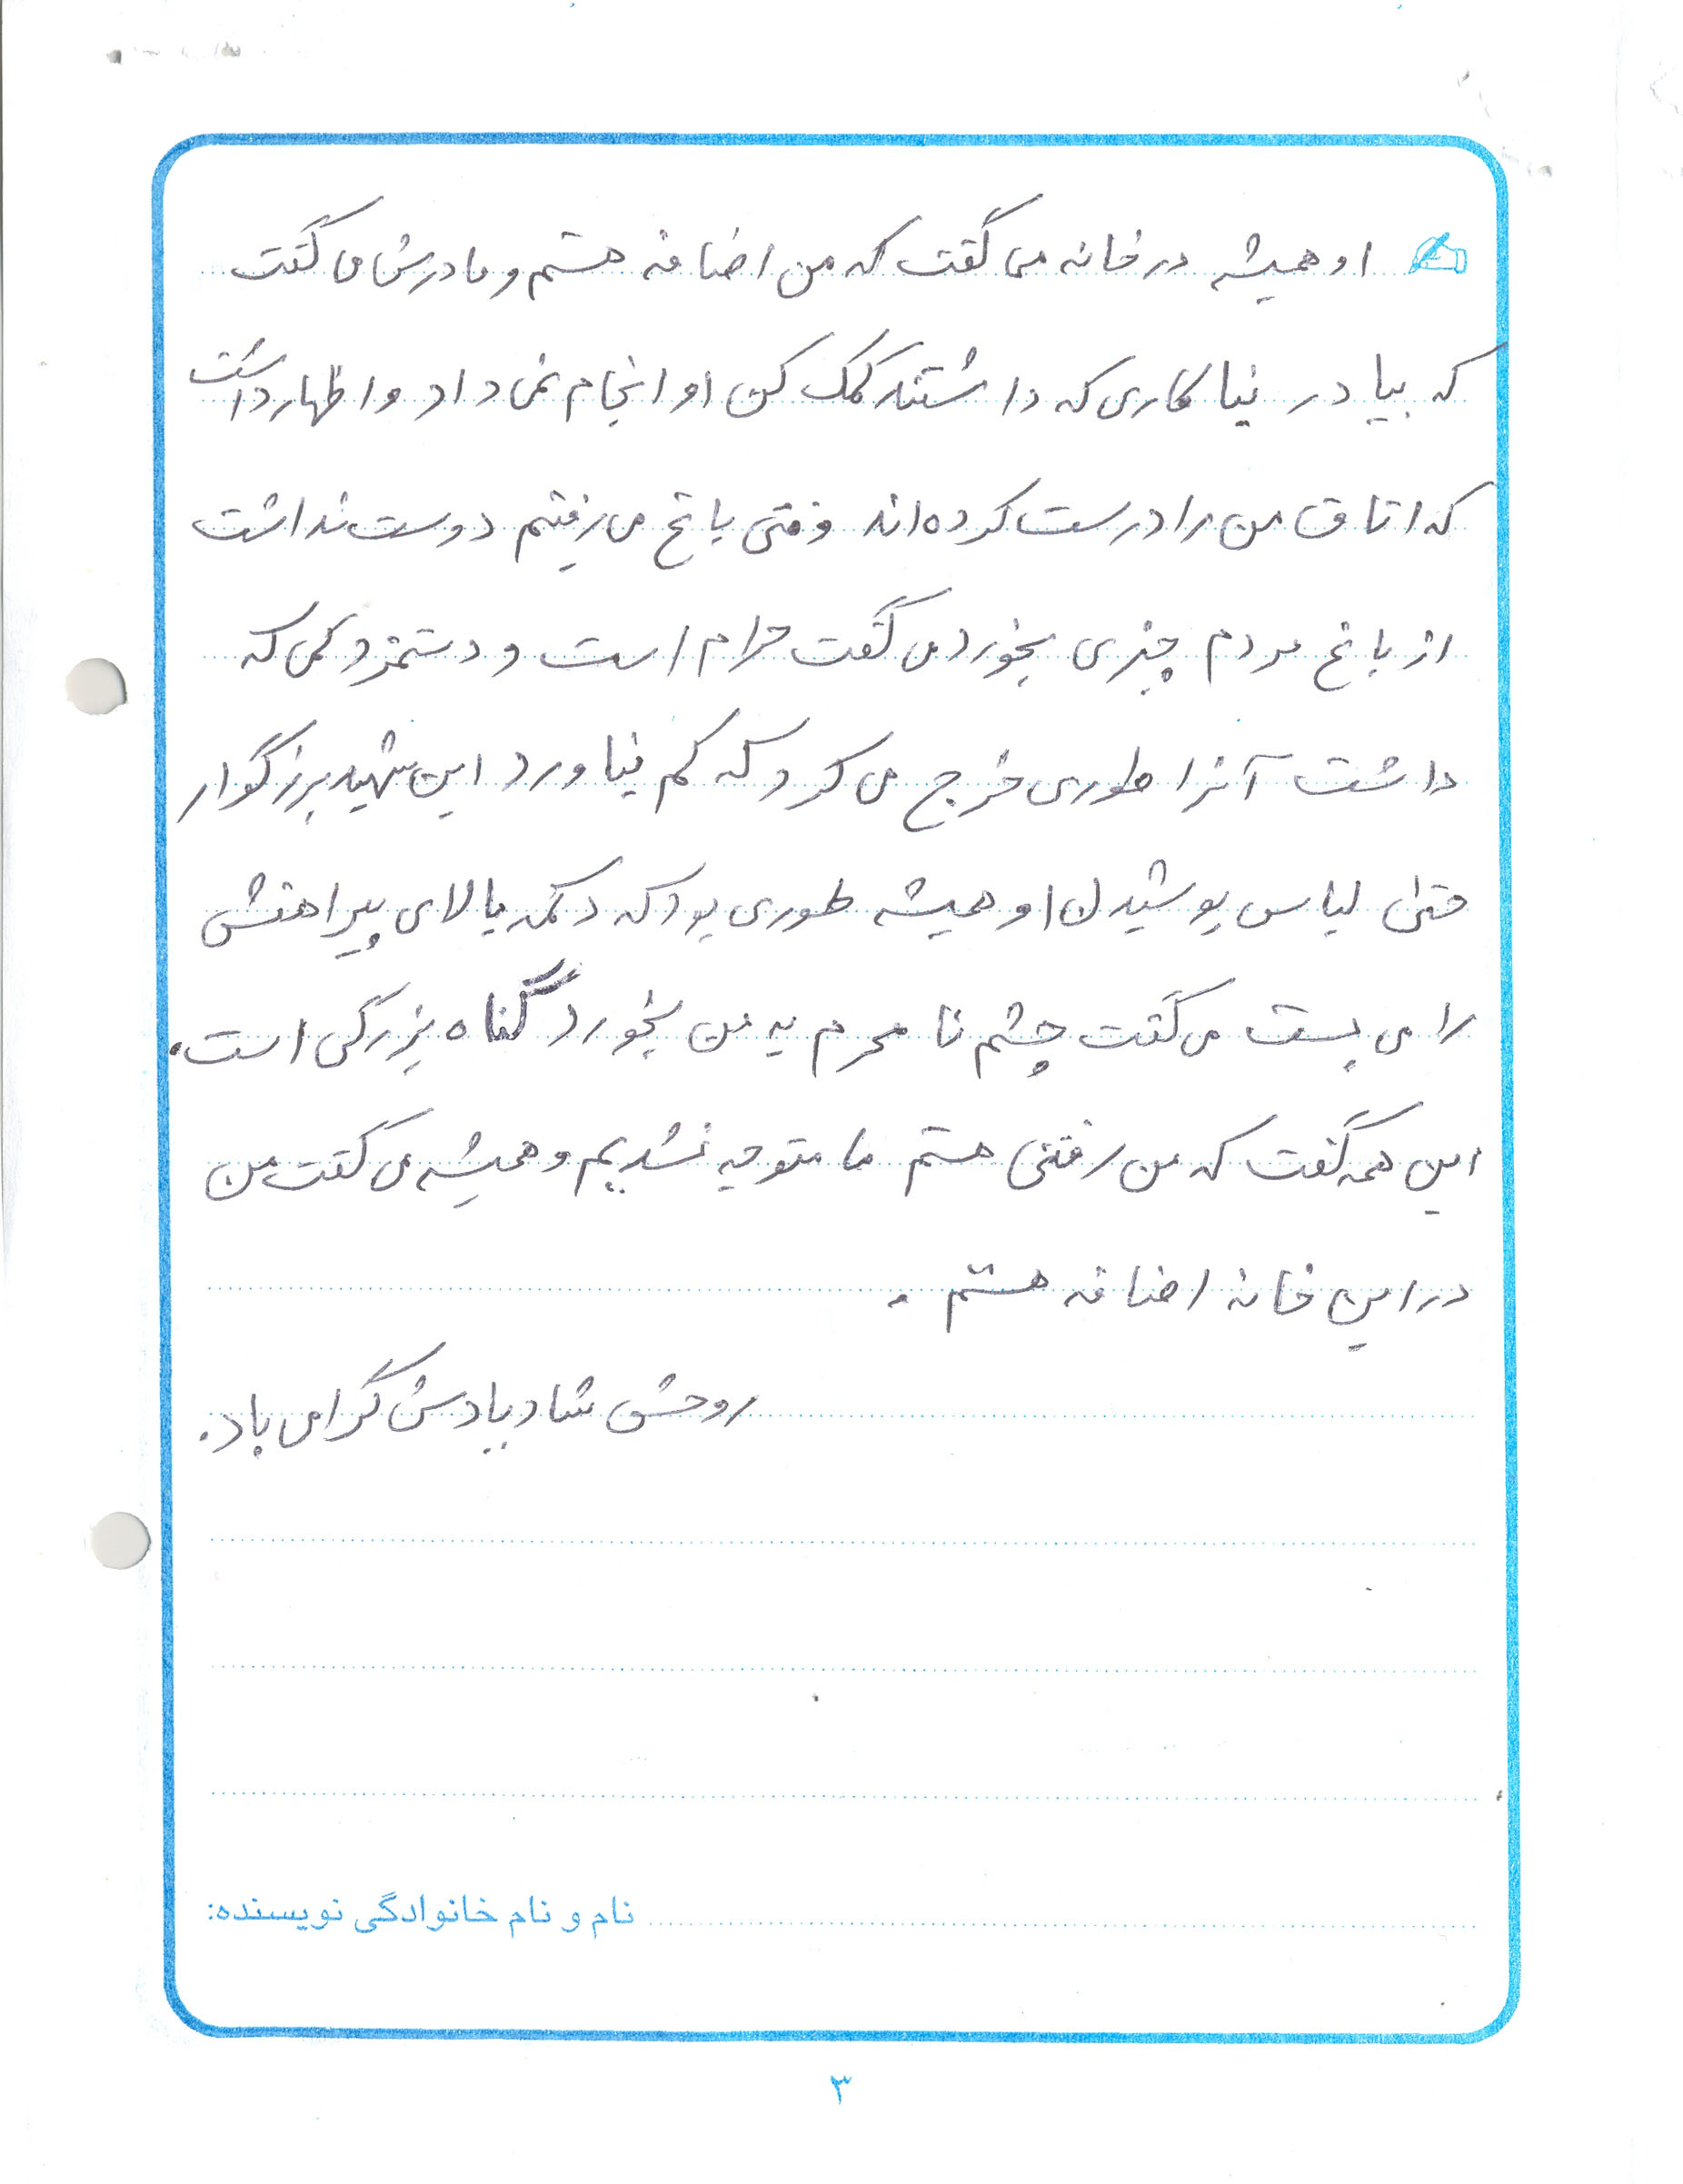 او همیشه در خانه می گفت که من اضافه هستم و مادرش می گفت
که بیا در بنا کاری که داشتند کمک کن او انجام نمی داد و اظهار داشت
که اتاق من را درست کرده اند وقتی باغ می رفتیم دوست نداشت
از باغ مردم چیزی بخورد می گفت حرام است و دستمزد کمی که
داشت آنرا طوری خرج می کرد که کم نیاورد این شهید بزرگوار
حتی لباس پوشیدن او همیشه طوری بود که دکمه بالای پیراهنش
را می بست می گفت چشم نا محرم به من بخورد گناه بزرگی است.
این همه گفت که من رفتنی هستم ما متوجه نشدیم و همیشه می گفت من
در این خانه اضافه هستم .
روحش شاد یادش گرامی باد.
نام و نام خانوادگی نویسنده:
۳